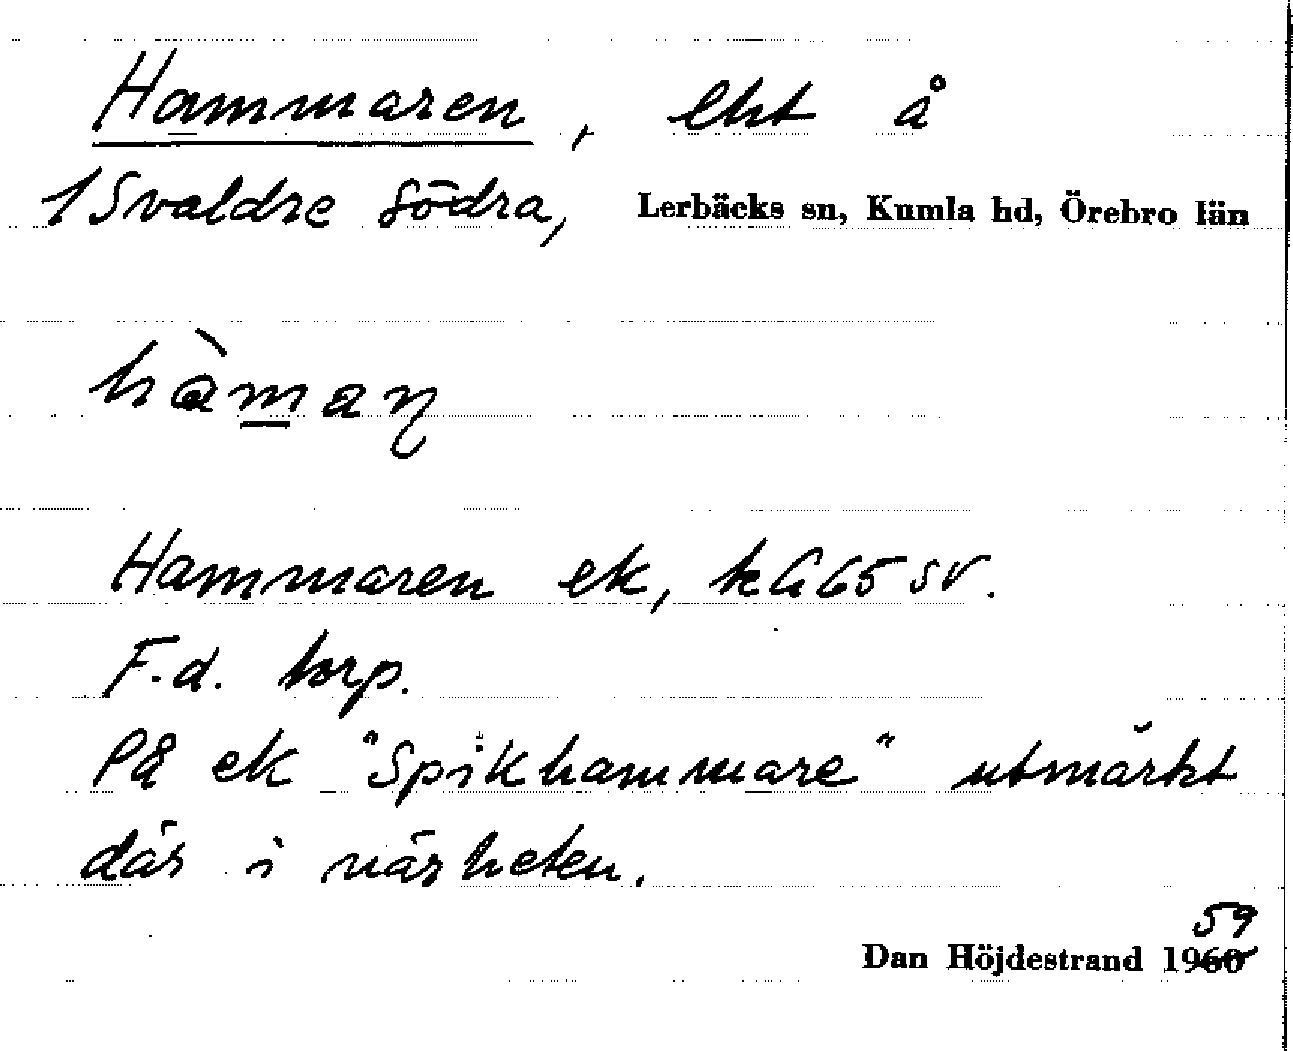 Hammaren, lht å
1 Svaldre södra, Lerbäcks sn, Kumla hd, Örebro län
hàmaɳ
Hammaren ek, k G65 SV.
F.d. torp.
På ek "Spikhammare" utmärkt
där i närheten.
59
Dan Höjdestrand 1960